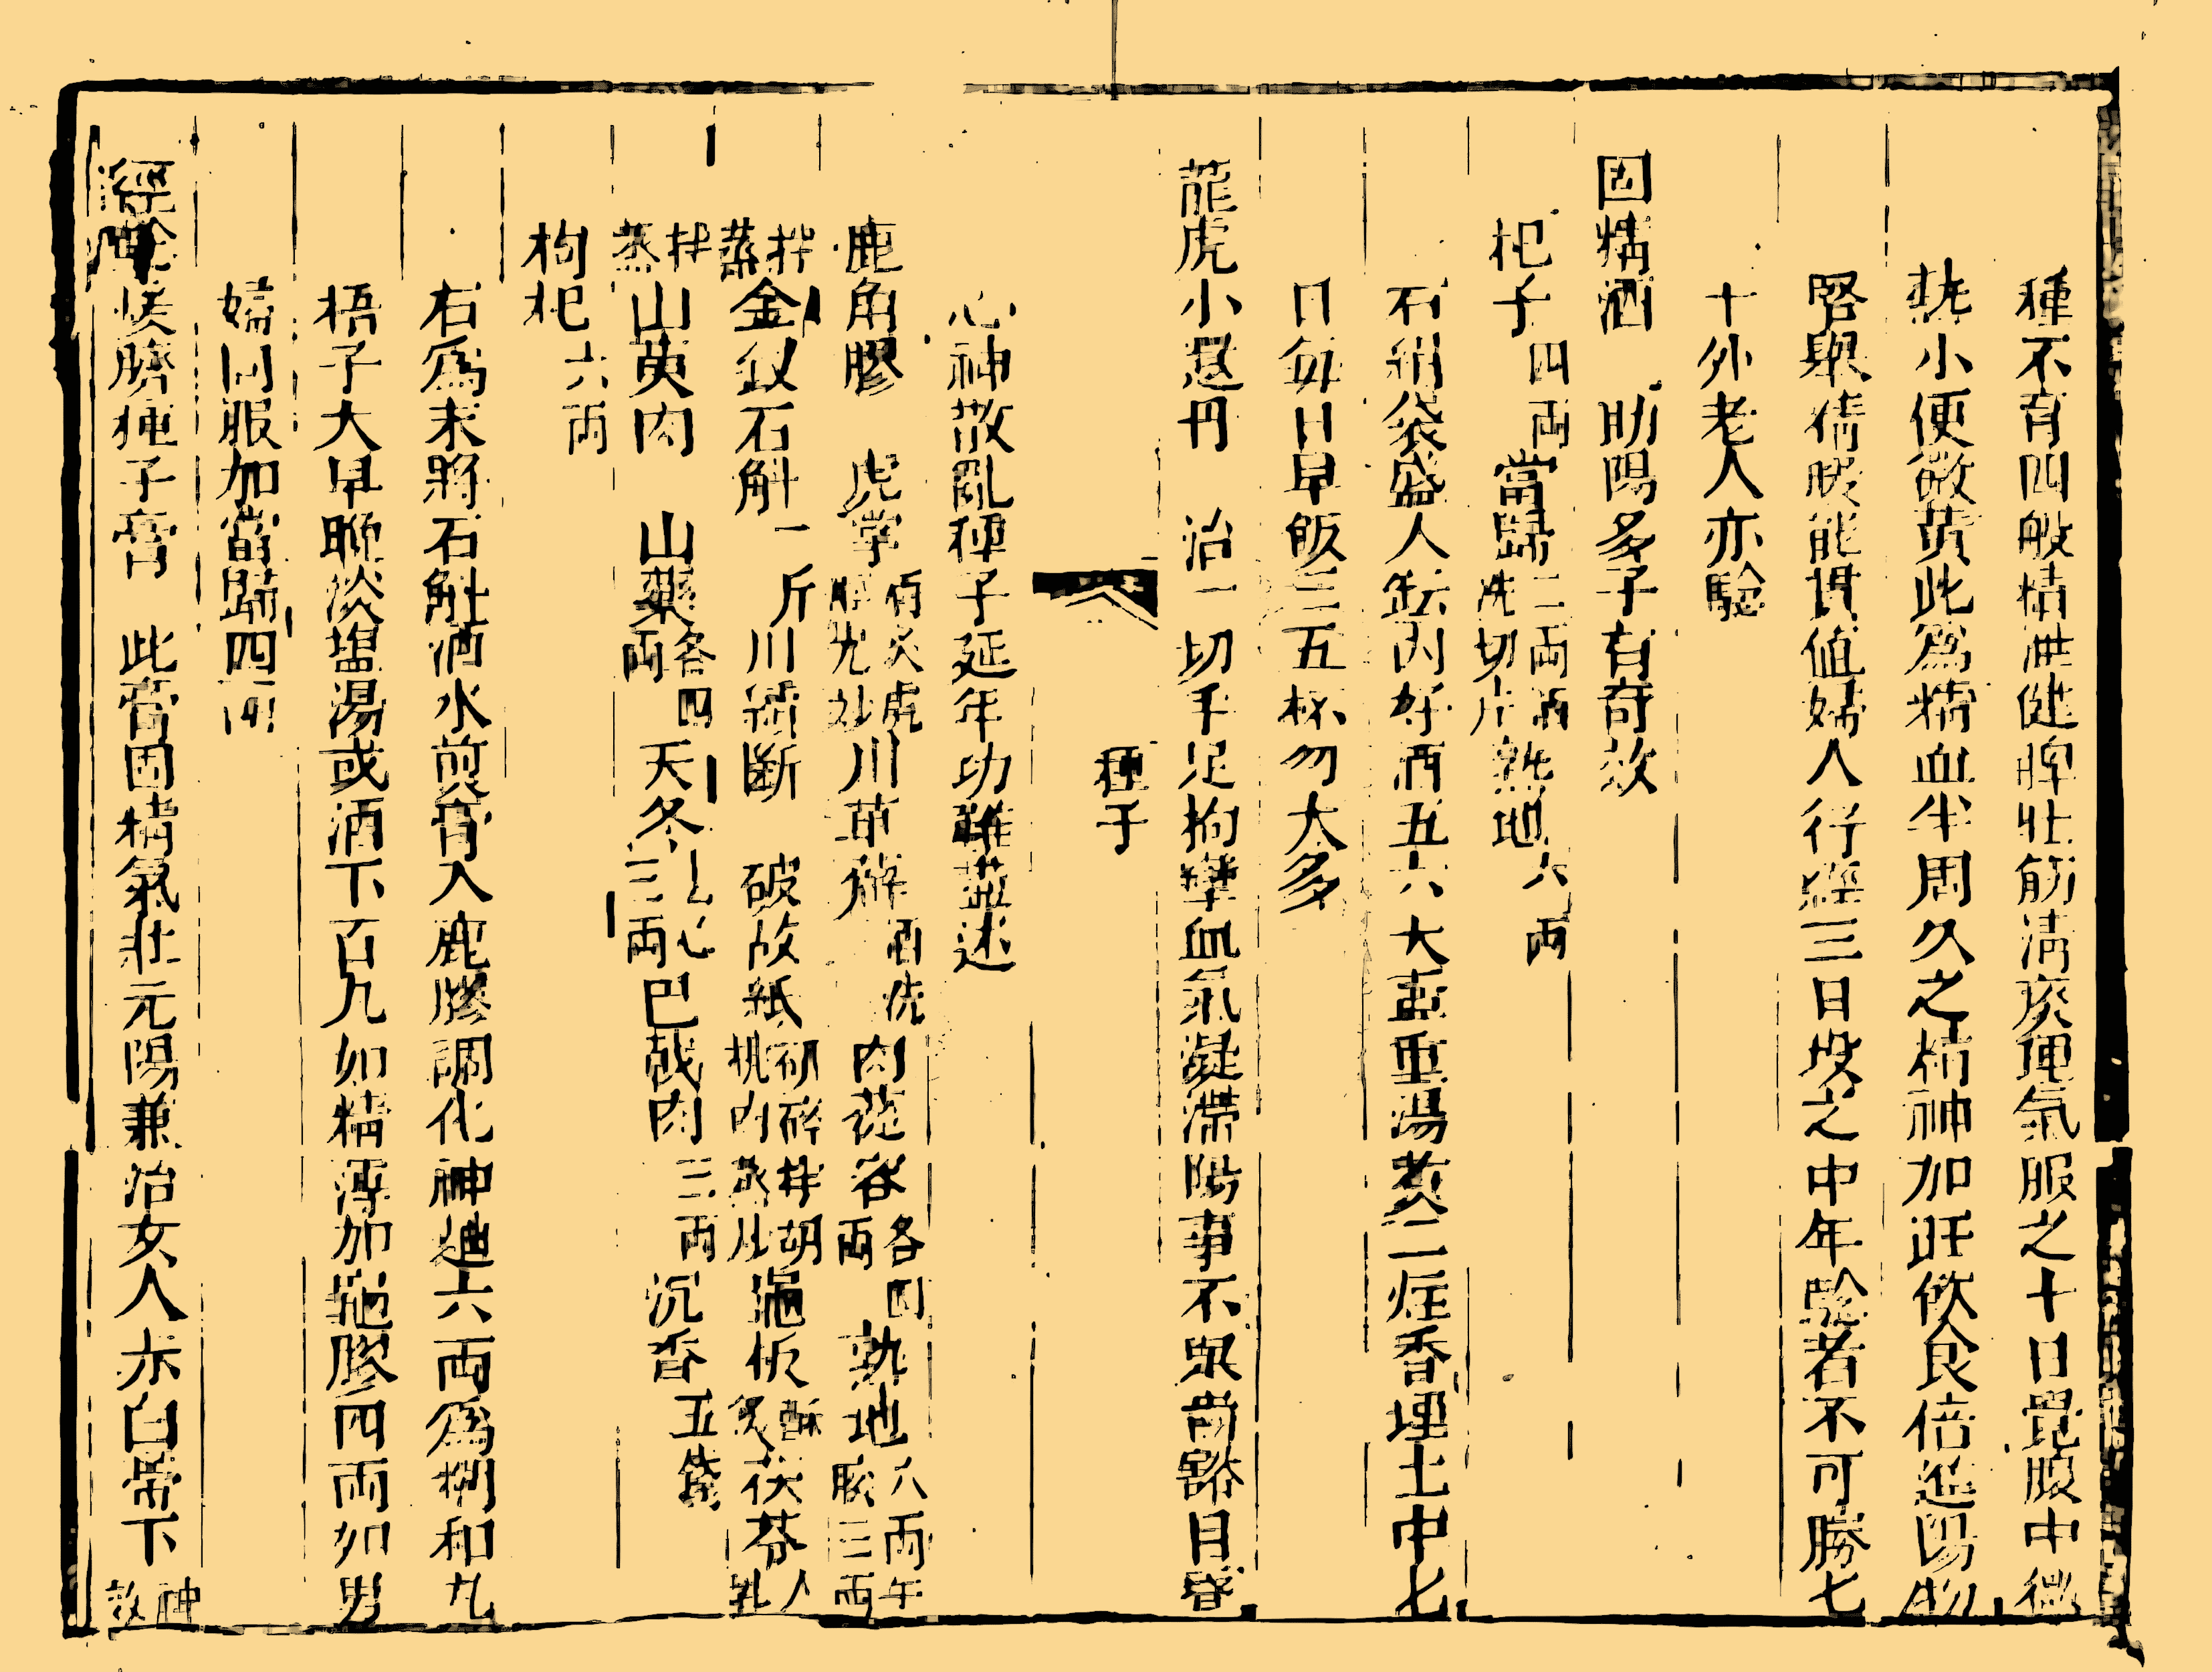 種不育四般精泄健脾壯筋清痰運氣服之十日覺腹中微
熱小便微黃此爲精血半周久之精神加旺飲食倍進陽物
堅舉精暖能貫值婦人行經三日投之中年驗者不可勝七
十外老人亦驗
固精酒 助陽多子有奇效
杞子四兩當歸二兩酒洗切片熟地六兩
右絹袋盛入缸內好酒五六大壺重湯煮二炷香埋土中七
日每日早飯三五杯勿大多
龍虎小還丹 治一切手足拘攣血氣凝滯陽事不舉黄豁目昏
種子
心神散亂種子延年功難盡述
鹿角膠 虎掌炙虎川萆薢酒洗肉蓯蓉各四兩熟地八兩牛膝三兩
金釵石斛一斤川續斷 破故紙初碎拌胡桃肉蒸晒龜板酥炙茯苓人乳
拌蒸山萸肉 山藥各四兩天冬去心三兩巴戟肉三兩沉香五錢
拌蒸枸杞六兩
右爲末將石斛酒水煎膏入鹿膠調化神麯六兩爲糊和丸
梧子大早晚淡塩湯或酒下百丸如精薄加龜膠四兩如男
婦同服加當歸四兩
經驗煖臍種子膏 此膏固精氣壯元陽兼治女人赤白帶下神效